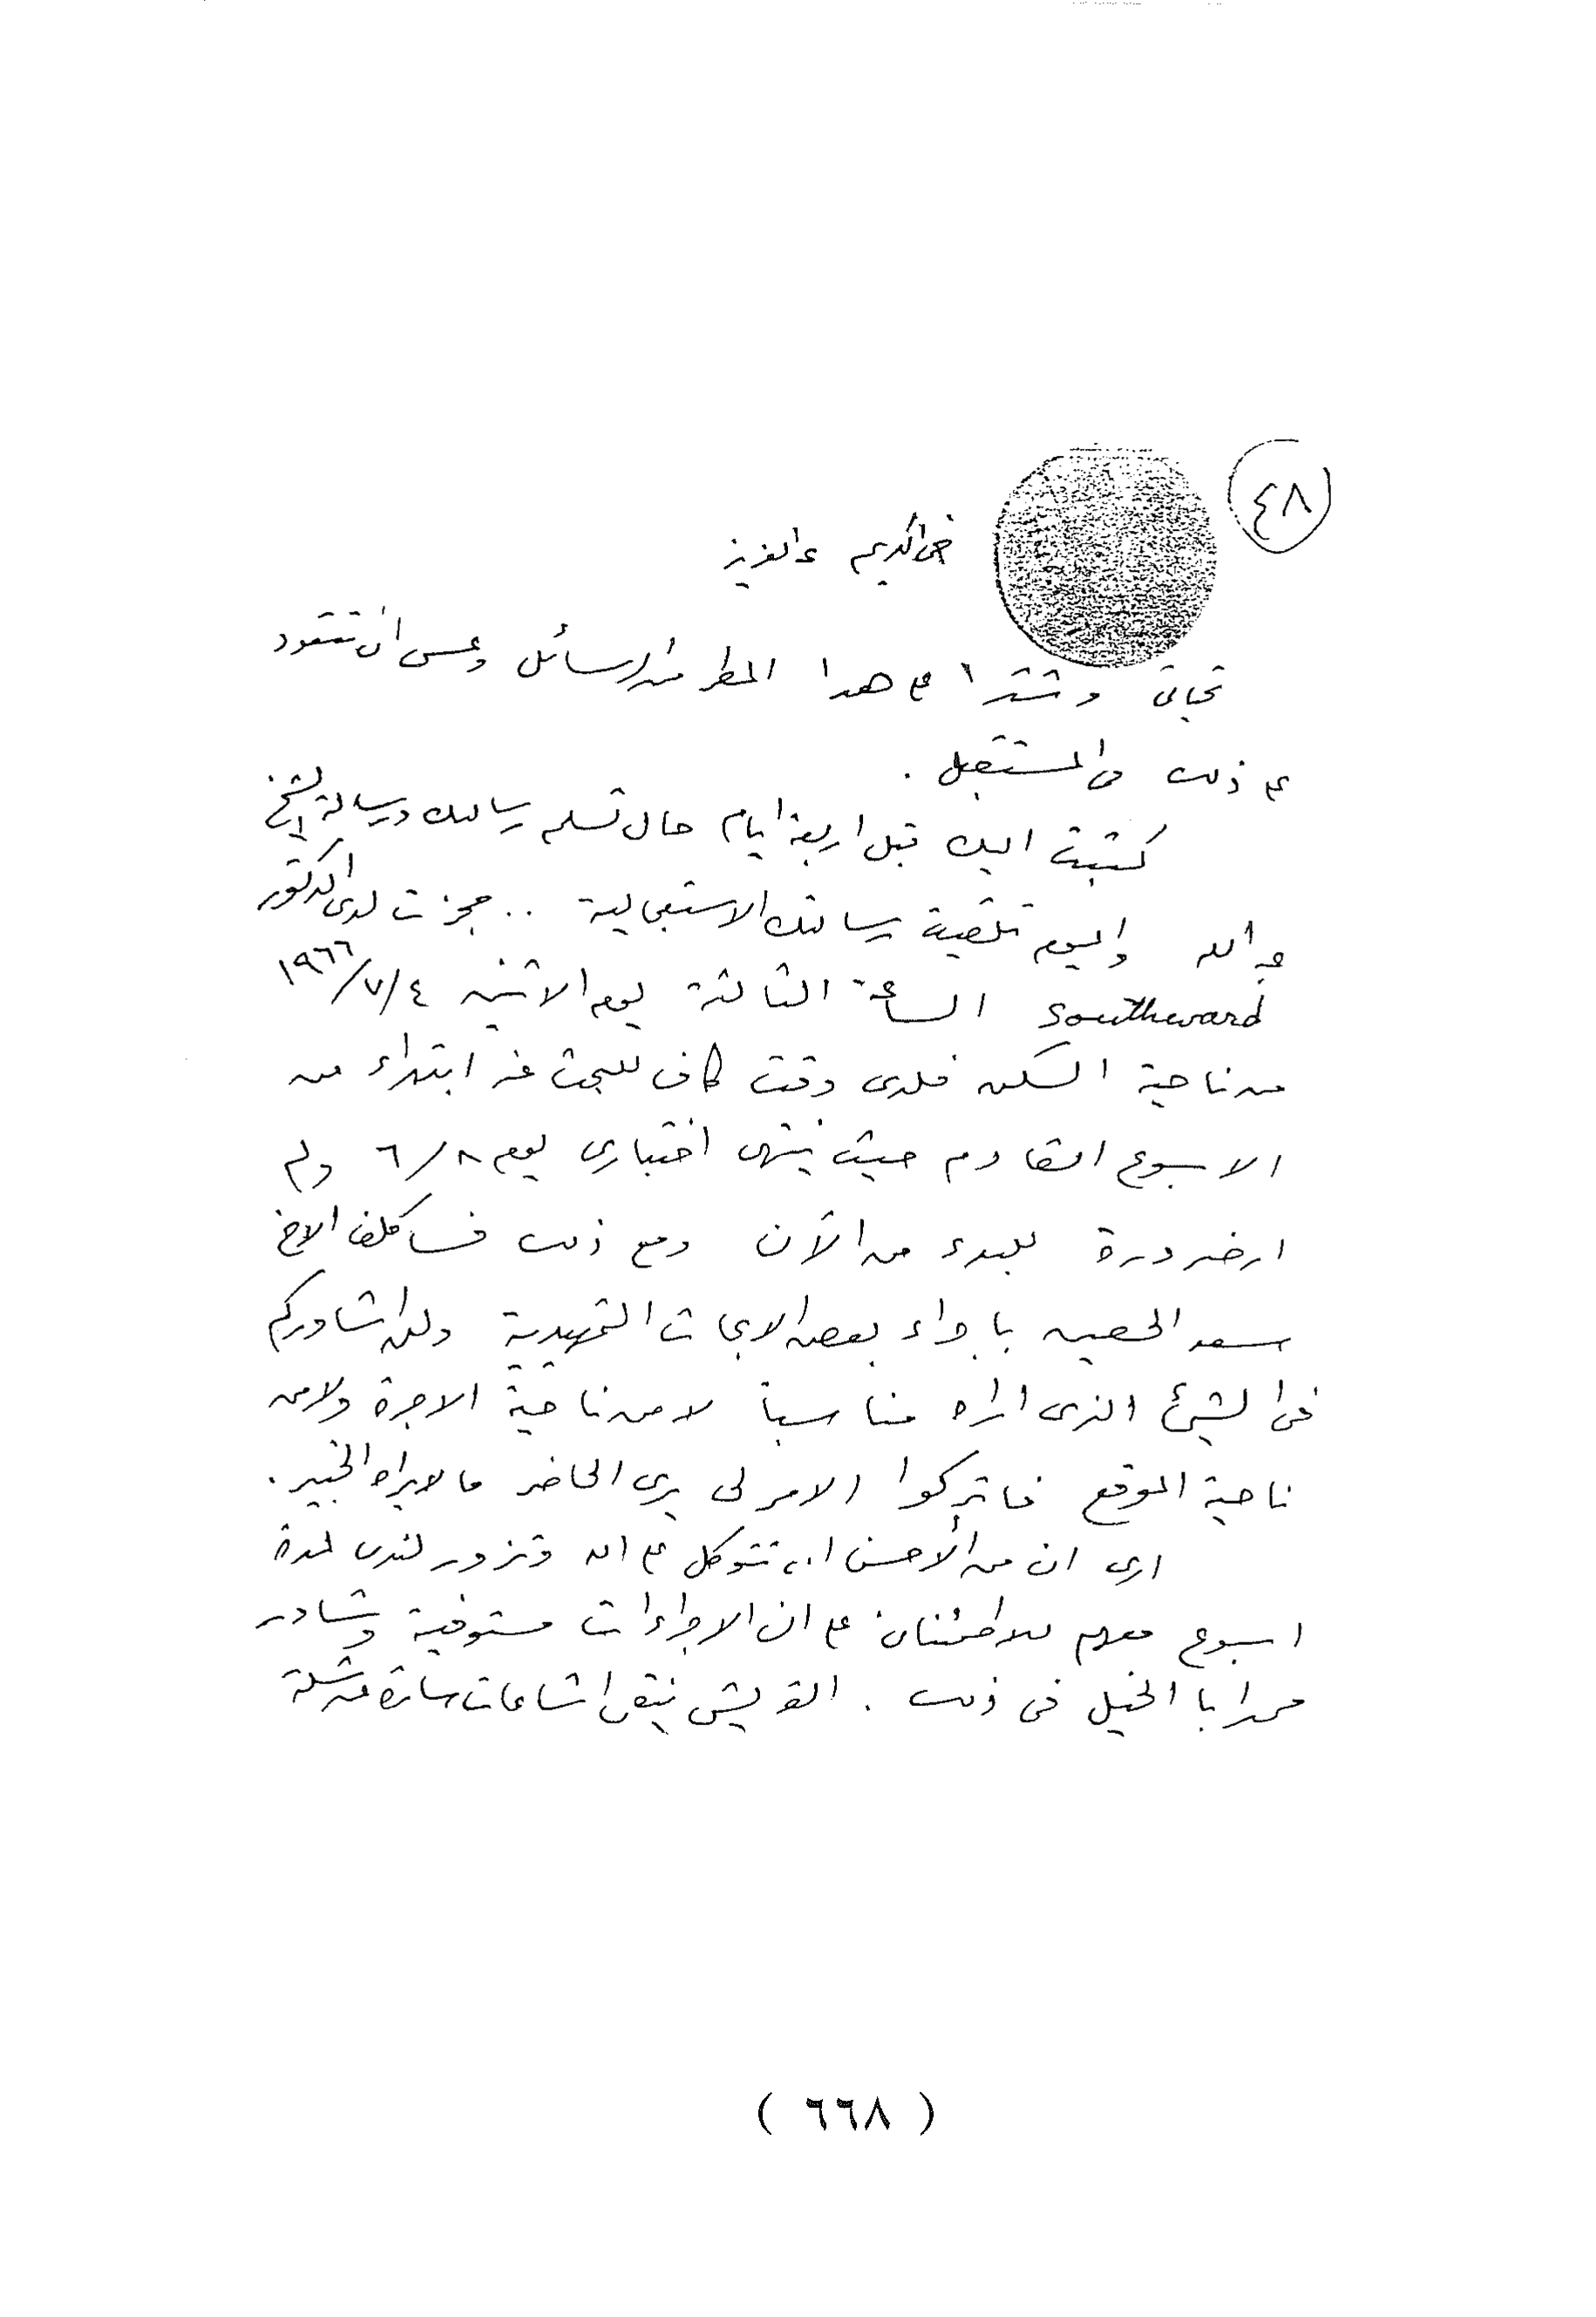 ٤٨
اخي الكريم عبدالعزيز
تحياتي وشكرا على هذا المطر من الرسائل وعسى ان تتعود
على ذلك في المستقبل .
كتبت اليك قبل اربعة ايام حال تسلم رسالتك ورسالة الشيخ
عبدالله واليوم تلقيت رسالتك الاستعجالية .. حجزت لدى الدكتور
Southward الساعة الثالثة يوم الاثنين ١٩٦٦/٧/٤
من ناحية السكن فلدى وقت كاف للبحث عنه ابتداء من
الاسبوع القادم حيث ينتهى اختبارى يوم ٦/٨ ولم
ار ضرورة للبدء من الآن ومع ذلك فساكلف الاخ
سعد الحصين باجراء بعض الابحاث التمهيدية ولن اشاوركم
فى الشيئ الذى اراه مناسباً لا من ناحية الاجرة ولا من
ناحية الموقع فاتركوا الامر لى يرى الحاضر ما لا يراه الخبير .
ارى ان من الأحسن ان تتوكل على الله وتزور لندن لمدة
اسبوع معهم للاطمئنان على ان الاجراءات مستوفية وشاور
محمد ابا الخيل فى ذلك . القويش ينقل اشاعات سارة عن شلة
( ٦٦٨ )